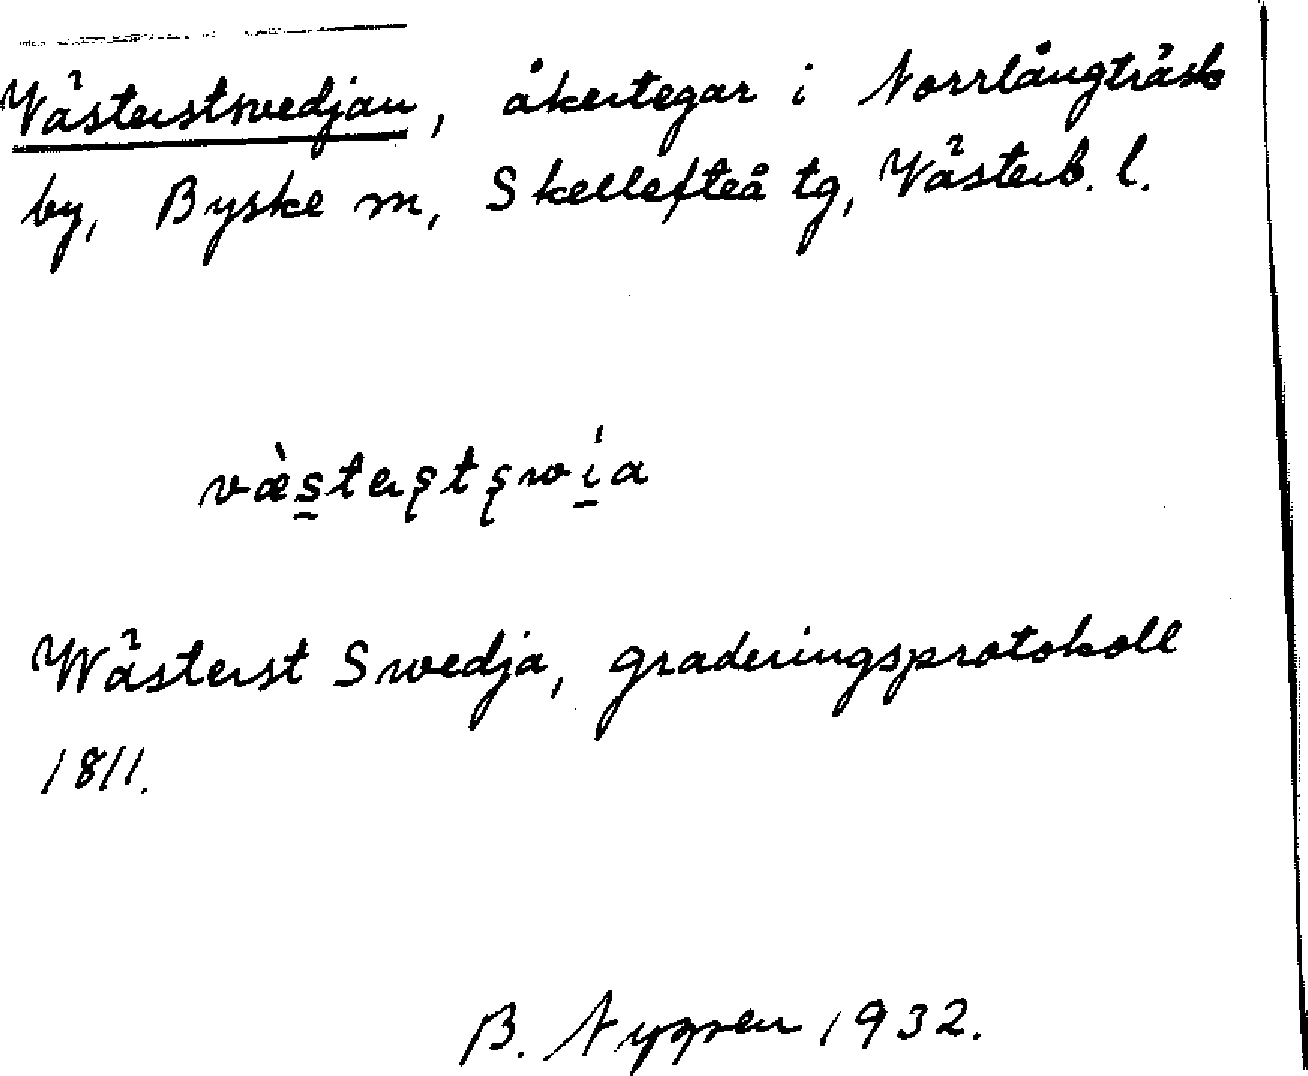 Västerstsvedjan, åkertegar i Norrlångträsk
by, Byske sn, Skellefteå tg, Västerb. l.
væ̀sterştşwí̱a
Wästerst Swedja, graderingsprotokoll
1811.
B. Nygren 1932.